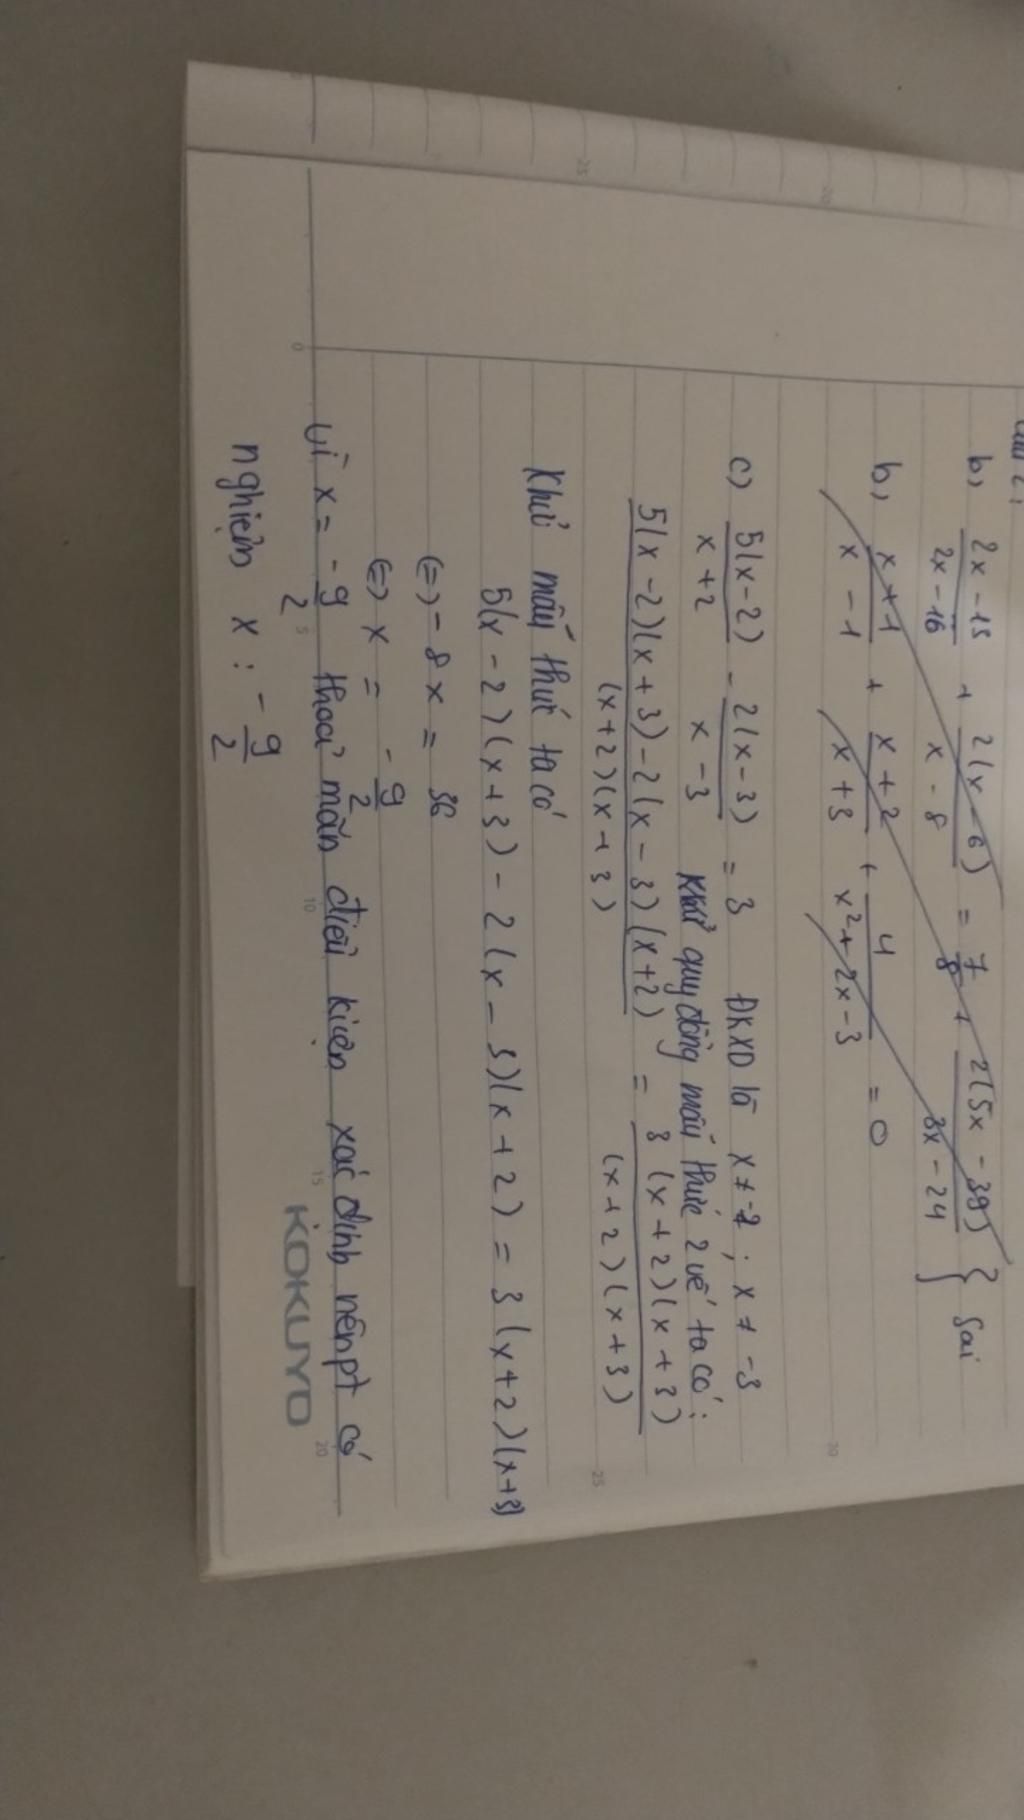 b, 2x - 15 / 2x - 16 + 2(x - 6) / x - 8 = 7/8 + 2(5x - 39) / 3x - 24 } Sai
b, x + 1 / x - 1 + x + 2 / x + 3 + 4 / x² + 2x - 3 = 0
c) 5(x - 2) / x + 2 - 2(x - 3) / x - 3 = 3 ĐKXD là x ≠ -2 ; x ≠ -3
quy đồng mẫu thức 2 vế ta có :
5(x - 2)(x + 3) - 2(x - 3)(x + 2) / (x + 2)(x + 3) = 3(x + 2)(x + 3) / (x + 2)(x + 3)
Khử mẫu thức ta có
5(x - 2)(x + 3) - 2(x - 3)(x + 2) = 3(x + 2)(x + 3)
(=) - 8x = 36
(=) x = - 9/2
Vì x = - 9/2 thoả mãn điều kiện xác định nên pt có
nghiệm x : - 9/2
KOKUYO